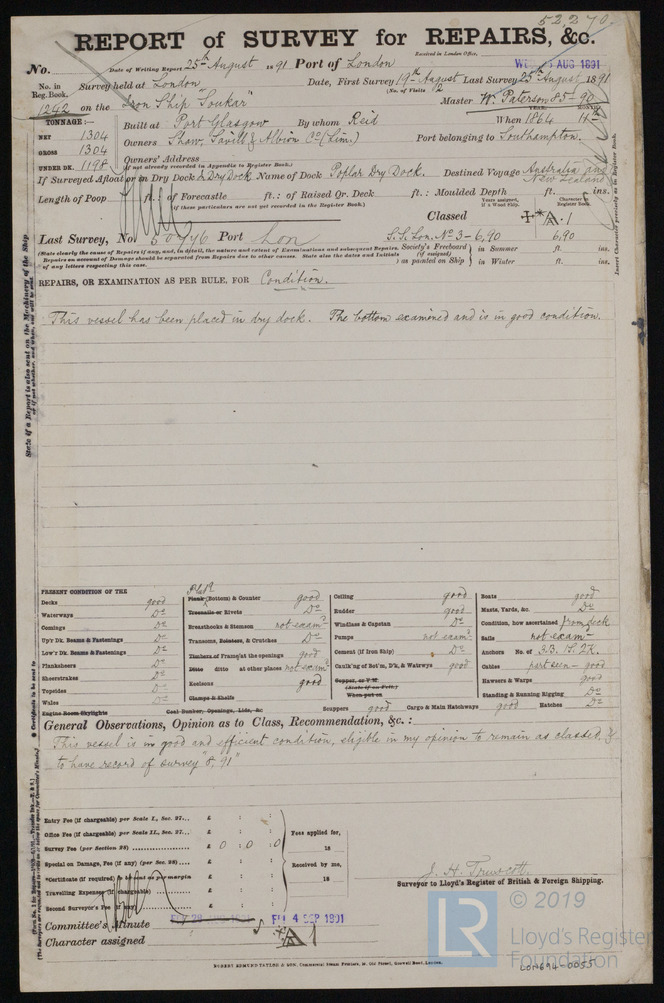 52,270.
REPORT of SURVEY for REPAIRS, &c.
Received in London Office,
No. Date of Writing Report 25th August 1891 Port of London
AUG 1891
No. in Reg. Book. Survey held at London Date, First Survey 19th August Last Survey 25th August 1891
(No. of Visits 2)
1242 on the Iron Ship "Soukar" Master W. Paterson 85-90
TONNAGE:— Built at Port Glasgow By whom Reid When 1864 4th
YEAR. MONTH.
NET 1304
GROSS 1304 Owners Shaw, Savill & Albion Co (Lim.) Port belonging to Southampton.
UNDER DK. 1198 Owners' Address
(If not already recorded in Appendix to Register Book.)
If Surveyed Afloat or in Dry Dock Dry Dock Name of Dock Poplar Dry Dock. Destined Voyage Australia and New Zealand
Length of Poop ft.: of Forecastle ft.: of Raised Qr. Deck ft.: Moulded Depth ft. ins.
(If these particulars are not yet recorded in the Register Book.)
Years assigned, if a Wood Ship. Character in Register Book.
Classed A.1
Last Survey, No. Port Lon S.S. Lon. No 3-6,90 6,90
(State clearly the cause of Repairs if any, and, in detail, the nature and extent of Examinations and subsequent Repairs.
Repairs on account of Damage should be separated from Repairs due to other causes. State also the dates and Initials
of any letters respecting this case.
Society's Freeboard (if assigned) as painted on Ship in Summer ft. ins.
in Winter ft. ins.
REPAIRS, OR EXAMINATION AS PER RULE, FOR Condition.
This vessel has been placed in dry dock. The bottom examined and is in good condition.
PRESENT CONDITION OF THE
Decks good
Waterways Do
Comings Do
Upr Dk. Beams & Fastenings Do
Low'r Dk. Beams & Fastenings Do
Planksheers Do
Sheerstrakes Do
Topsides Do
Wales Do
Engine Room Skylights
Plate
Plank (Bottom) & Counter good
Treenails or Rivets Do
Breasthooks & Stemson not examd
Transoms, Pointers, & Crutches Do
Timbers of Frame/at the openings good
Ditto ditto at other places not examd
Keelsons good
Clamps & Shelfs
Coal Bunker, Openings, Lids, &c
Ceiling good
Rudder good
Windlass & Capstan Do
Pumps not examd
Cement (if Iron Ship) Do
Caulk'ng of Bot'm, D'k, & Waterways good
Copper, or Y.M.
(State if on Felt.)
When put on
Scuppers good Cargo & Main Hatchways good Hatches Do
Boats good
Masts, Yards, &c. Do
Condition, how ascertained from deck
Sails not exam
Anchors No. of 3.B. 1S. 2K.
Cables part seen - good
Hawsers & Warps good
Standing & Running Rigging Do
General Observations, Opinion as to Class, Recommendation, &c.:
This vessel is in good and efficient condition, eligible in my opinion to remain as classed, &
to have record of survey "8, 91"
Entry Fee (if chargeable) per Scale I., Sec. 27... £ : :
Office Fee (if chargeable) per Scale II., Sec. 27... £ : :
Survey Fee (per Section 28) £ 0 : 0 : 0
Special on Damage, Fee (if any) (per Sec. 28).... £ : :
*Certificate (if required) to be sent as per margin £ : :
Travelling Expenses (if chargeable) £ : :
Second Surveyor's Fee (if any) £ : :
Fees applied for,
18
Received by me,
18
J. H. Truscott.
Surveyor to Lloyd's Register of British & Foreign Shipping.
Committee's Minute FRI 4 SEP 1891
Character assigned A 1
© 2019
LR
Lloyd's Register
Foundation
LON694-0055
ROBERT EDMUND TAYLOR & SON, Commercial Steam Printers, 19, Old Street, Goswell Road, London.